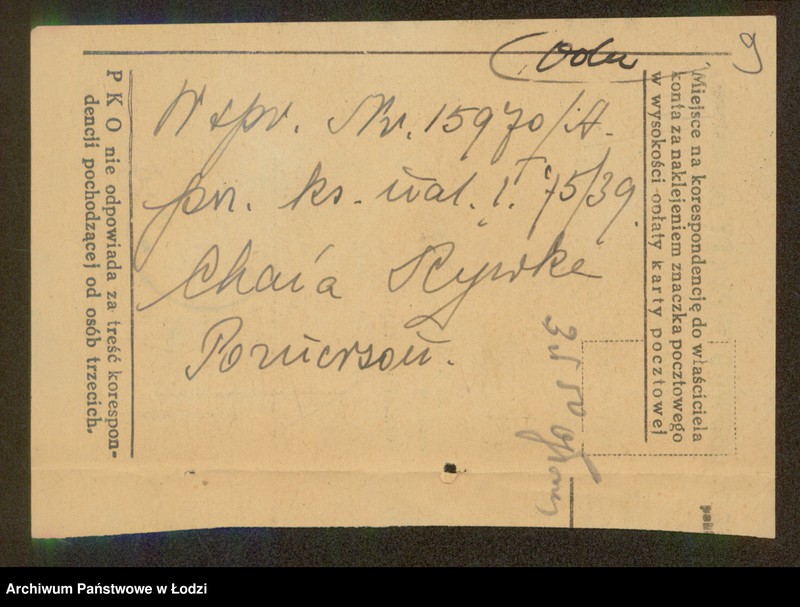 9
W spr. Nr. 15970/A.
pr. ks. wal. I. 75/39.
Chaia Rywke
Pomerson.
Miejsce na korespondencję do właściciela
konta za naklejeniem znaczka pocztowego
w wysokości opłaty karty pocztowej
P K O nie odpowiada za treść korespon-
dencji pochodzącej od osób trzecich.
3 zł 50 groszy
Archiwum Państwowe w Łodzi